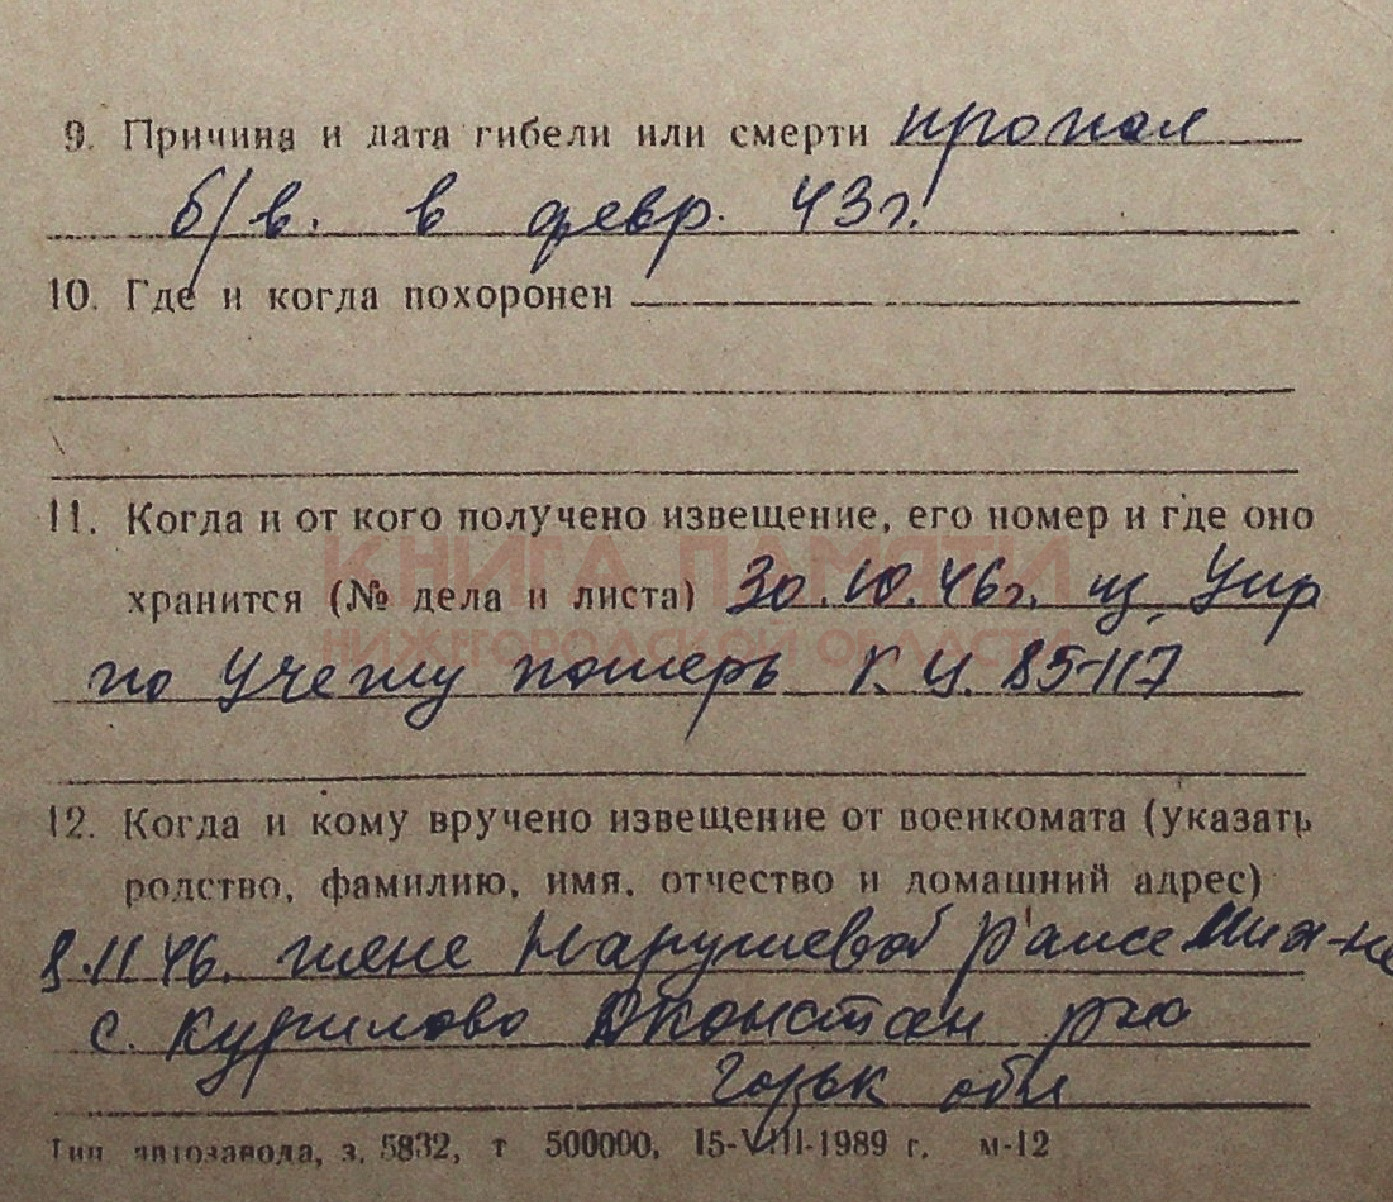 9. Причина и дата гибели или смерти пропал
б/в. в февр. 43г.
10. Где и когда похоронен
11. Когда и от кого получено извещение, его номер и где оно
КНИГА ПАМЯТИ
хранится (№ дела и листа) 30.10.46г. из Упр
НИЖЕГОРОДСКОЙ ОБЛАСТИ
по учету потерь 85-117
12. Когда и кому вручено извещение от военкомата (указать
родство, фамилию, имя, отчество и домашний адрес)
8.11 46. жене Марушевой Раисе
с. Курилово Дконстан р-на
Горьк обл
Тип автозавода, з. 5832, т 500000, 15-VIII-1989 г. м-12